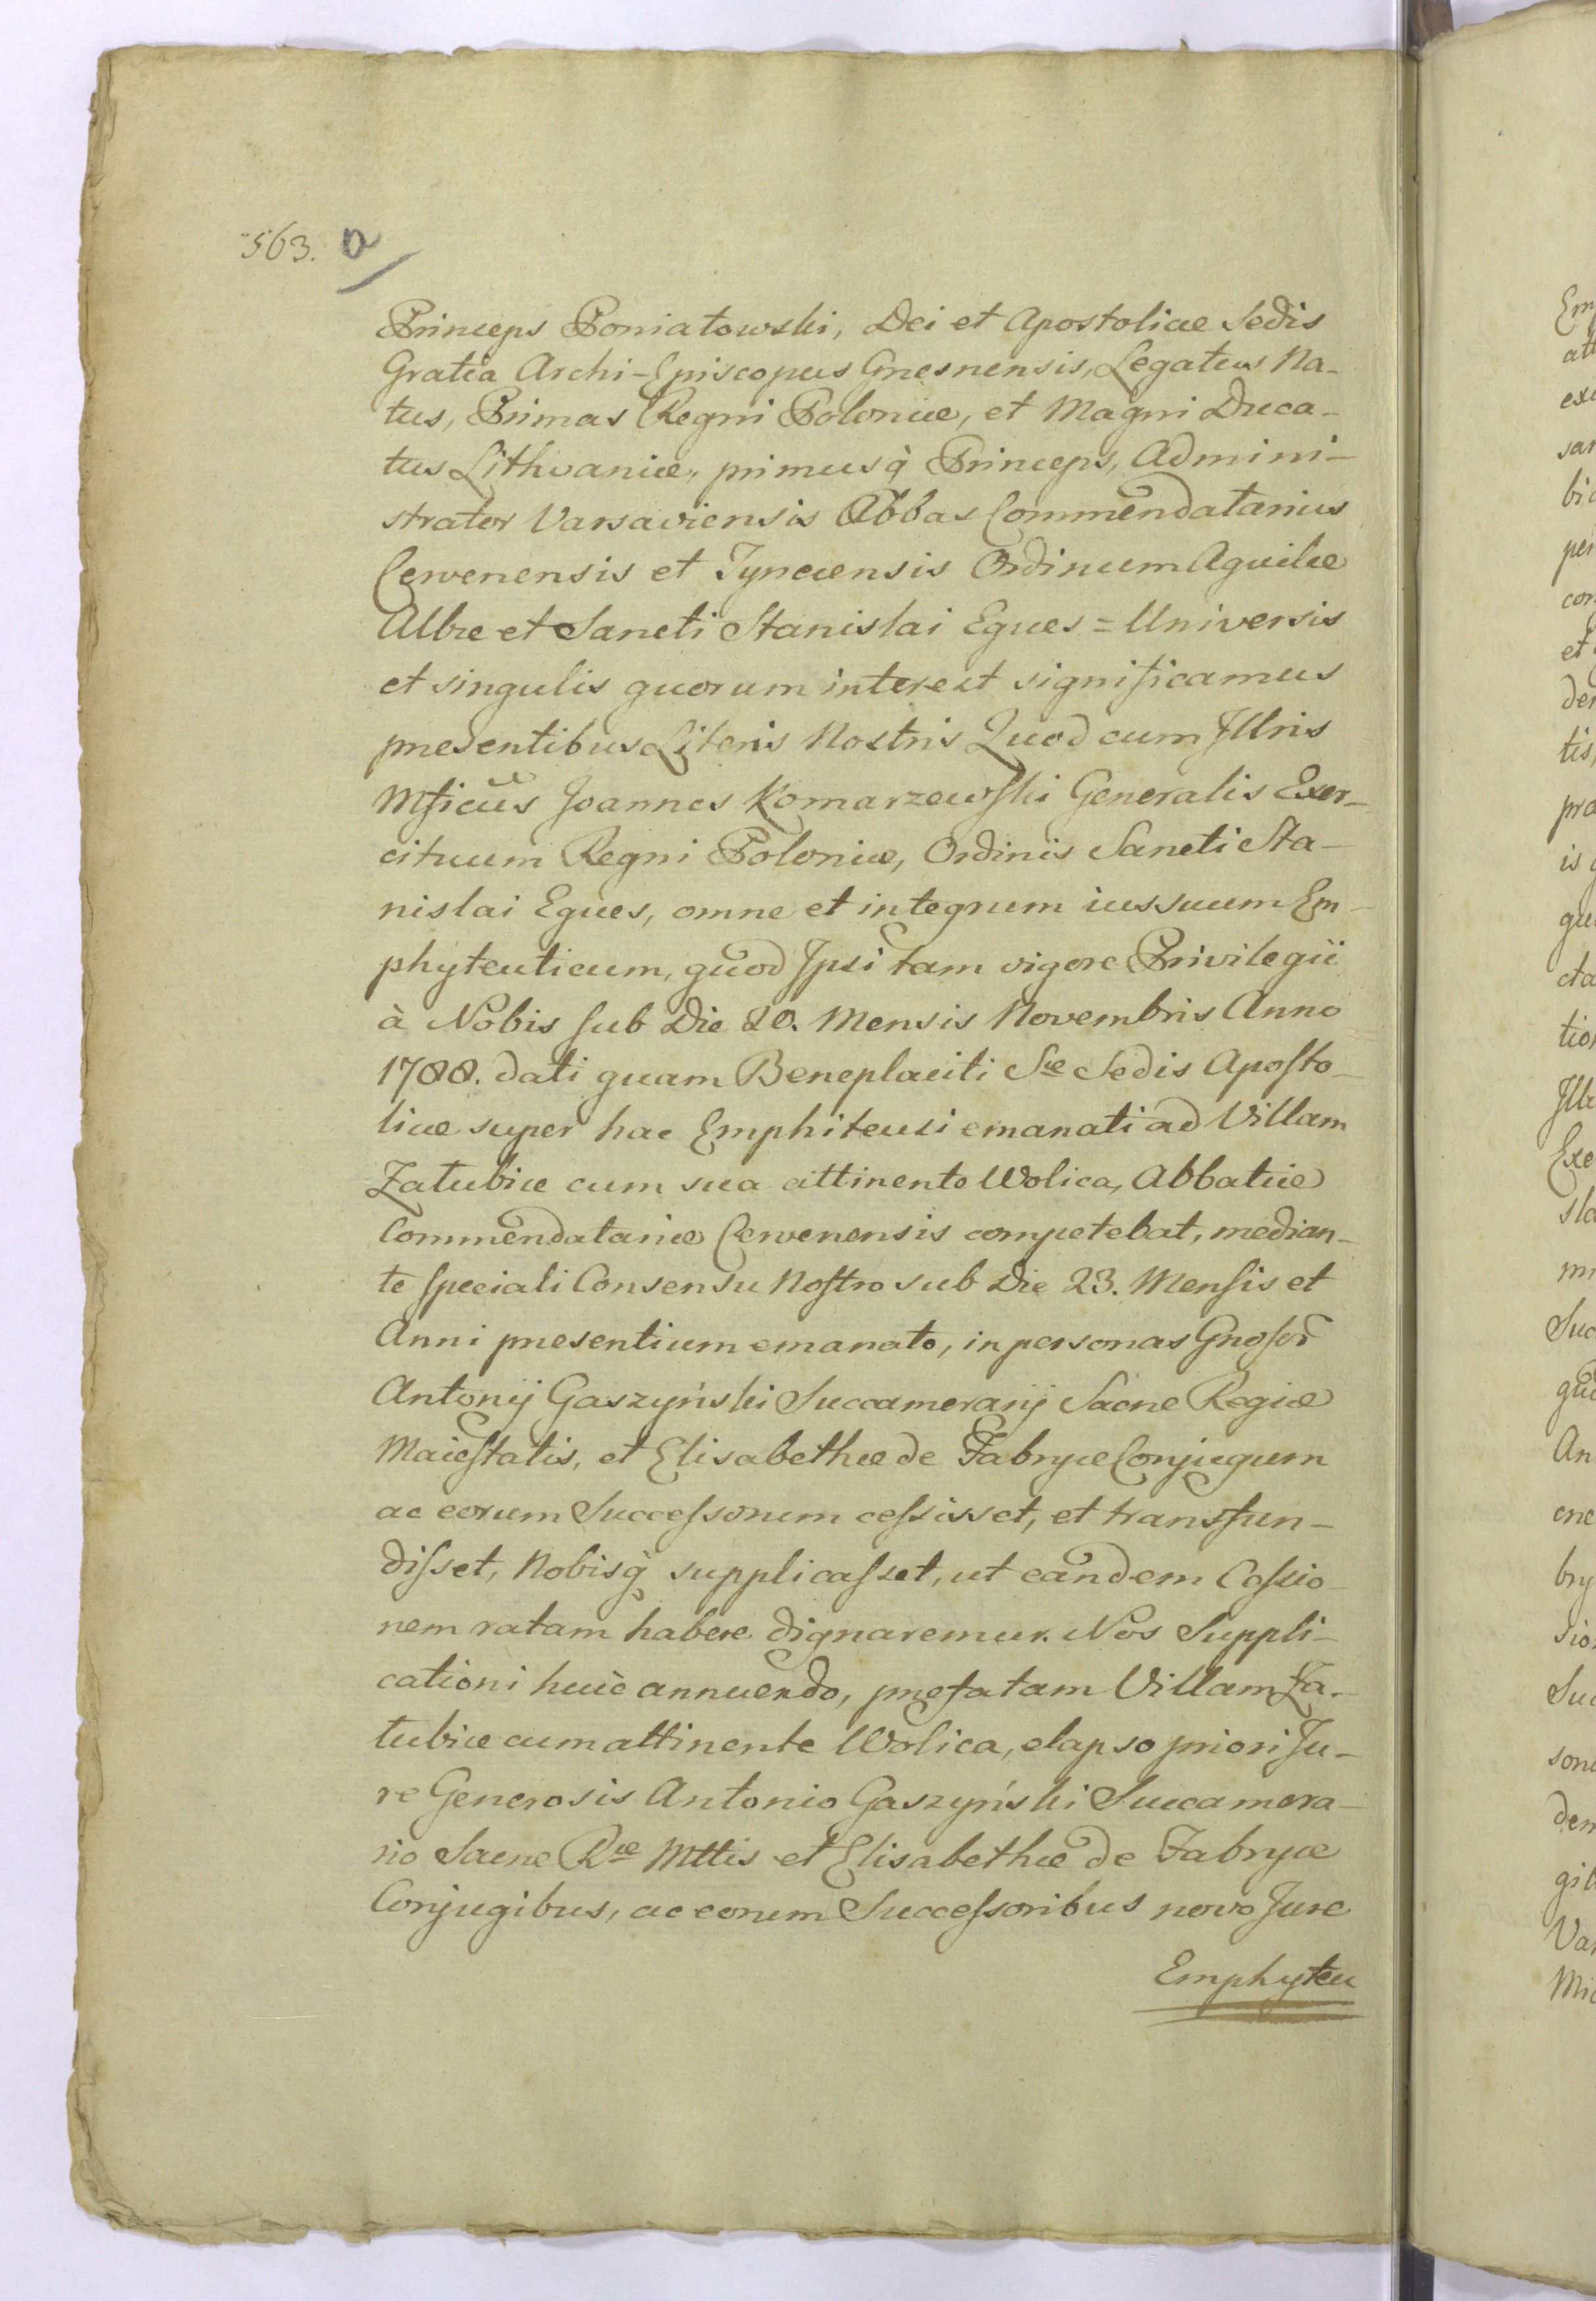 563. a
Princeps Poniatowski, Dei et Apostolicae Sedis
Gratia Archi-Episcopus Gnesnensis, Legatus Na-
tus, Primas Regni Poloniæ, et Magni Duca-
tus Lithvaniæ, primusq̀ Princeps, Admini-
strator Varsaviensis Abbas Commendatarius
Cervenensis et Tynecensis Ordinum Aquilæ
Albæ et Sancti Stanislai Eques = Universis
et singulis quorum interest significamus
presentibus Literis Nostris Quod cum Illris
Mficus Joannes Komarzewski Generalis Exer-
cituum Regni Poloniæ, Ordinis Sancti Sta-
nislai Eques, omne et integrum ius suum Em-
phyteuticum, quod Ipsi tam vigore Privilegii
à Nobis sub Die 20. Mensis Novembris Anno
1788. dati quam Beneplaciti Sæ Sedis Aposto-
licæ super hac Emphiteusi emanati ad Villam
Zatubice cum sua attinento Wolica, Abbatiæ
Commendatariæ Cervenensis competebat, median-
te speciali Consensu Nostro sub Die 23. Mensis et
Anni presentium emanato, in personas Gnosor̃
Antonij Gaszyński Succamerarij Sacræ Regiæ
Maiestatis, et Elisabethæ de Fabryce Conjugum
ac eorum Successorum cessisset, et transfun-
disset, Nobisq̀ supplicasset, ut eandem Cessio
nem ratam habere dignaremur. Nos Suppli-
cationi huic annuendo, prefatam Villam Za-
tubice cum attinente Wolica, elapso priori Ju-
re Generosis Antonio Gaszyński Succamera-
rio Sacræ Ræ Mttis et Elisabethæ de Fabryce
Conjugibus, ac eorum Successoribus novo Jure
Emphyteu